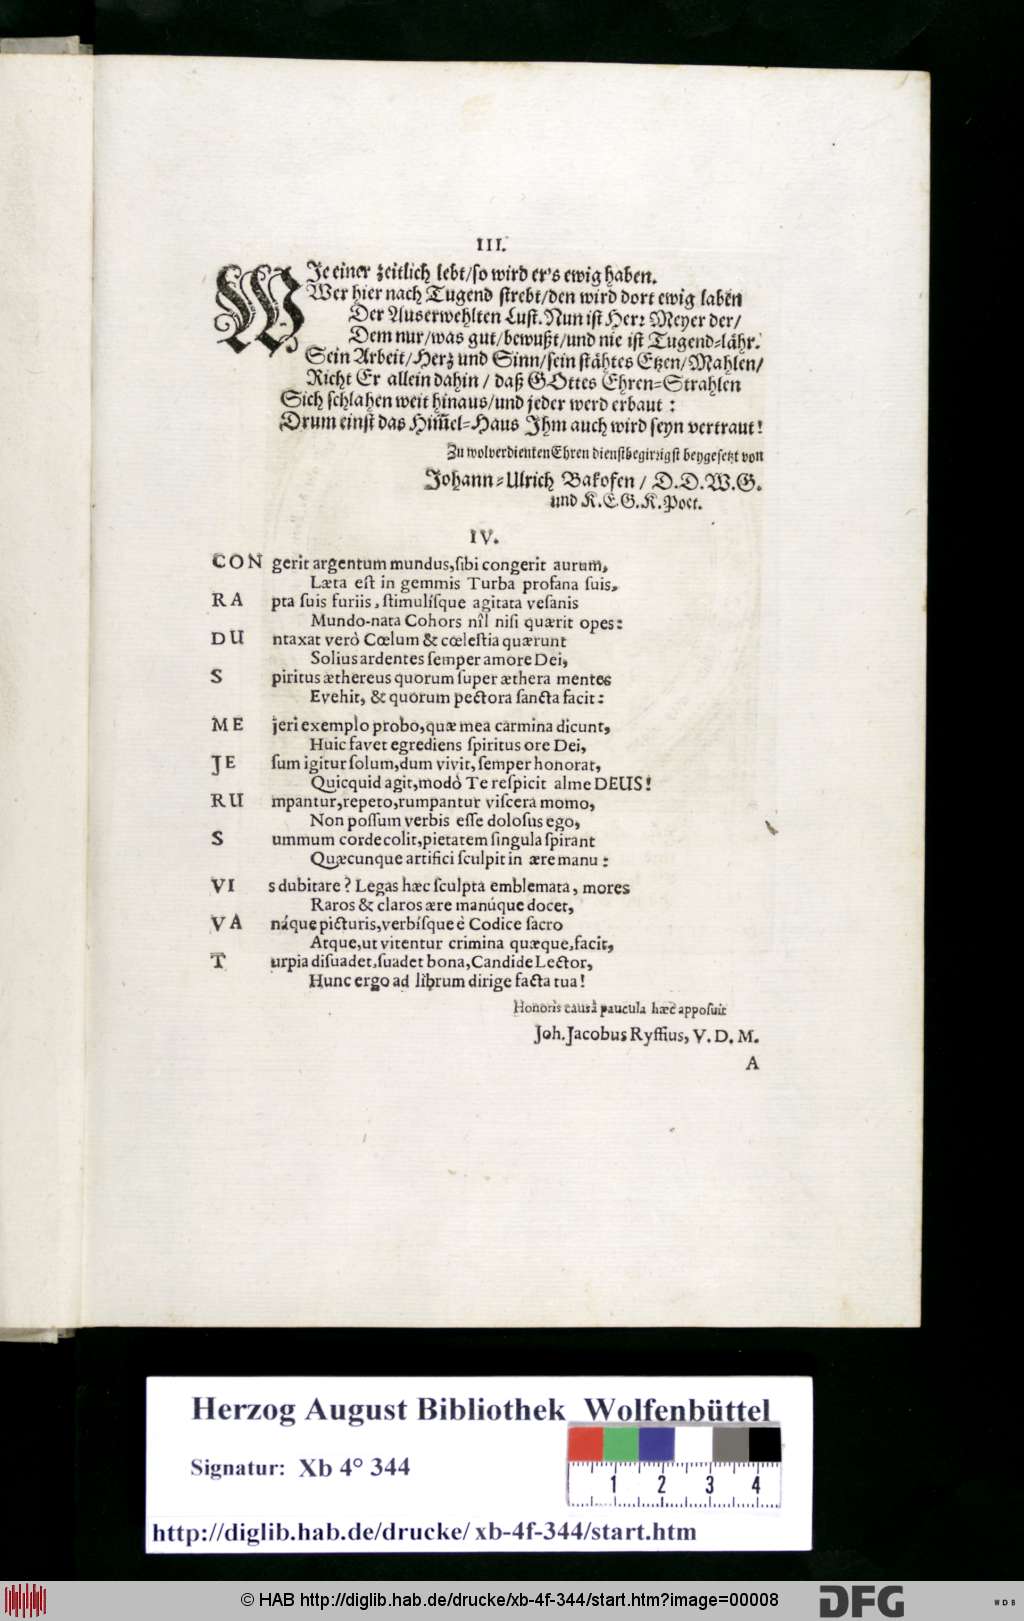 III.
WJe einer zeitlich lebt/so wird er's ewig haben.
Wer hier nach Tugend strebt/den wird dort ewig laben
Der Auserwehlten Lust. Nun ist Herr Meyer der/
Dem nur/was gut/bewußt/und nie ist Tugend=lähr.
Sein Arbeit/Herz und Sinn/sein stähtes Etzen/Mahlen/
Richt Er allein dahin/ daß GOttes Ehren=Strahlen
Sich schlahen weit hinaus/und jeder werd erbaut:
Drum einst das Him̃el=Haus Jhm auch wird seyn vertraut!
Zu wolverdienten Ehren dienstbegirrigst beygesetzt von
Johann=Ulrich Bakofen/ D.D.W.G.
und K.E.G.K.Poet.
IV.
CON gerit argentum mundus, sibi congerit aurum,
Læta est in gemmis Turba profana suis,
RA pta suis furiis, stimulísque agitata vesanis
Mundo-nata Cohors nîl nisi quærit opes:
DU ntaxat verò Cœlum & cœlestia quærunt
Solius ardentes semper amore Dei,
S piritus æthereus quorum super æthera mentes
Evehit, & quorum pectora sancta facit:
ME jeri exemplo probo, quæ mea carmina dicunt,
Huic favet egrediens spiritus ore Dei,
JE sum igitur solum, dum vivit, semper honorat,
Quicquid agit, modò Te respicit alme DEUS!
RU mpantur, repeto, rumpantur viscera momo,
Non possum verbis esse dolosus ego,
S ummum corde colit, pietatem singula spirant
Quæcunque artifici sculpit in ære manu:
VI s dubitare? Legas hæc sculpta emblemata, mores
Raros & claros ære manúque docet,
VA náque picturis, verbísque è Codice sacro
Atque, ut vitentur crimina quæque, facit,
T urpia disuadet, suadet bona, Candide Lector,
Hunc ergo ad librum dirige facta tua!
Honoris causâ paucula hæc apposuit
Joh. Jacobus Ryffius, V. D. M.
A
Herzog August Bibliothek Wolfenbüttel
Signatur: Xb 4° 344
1 2 3 4
http://diglib.hab.de/drucke/ xb-4f-344/start.htm
© HAB http://diglib.hab.de/drucke/xb-4f-344/start.htm?image=00008
DFG
WDB